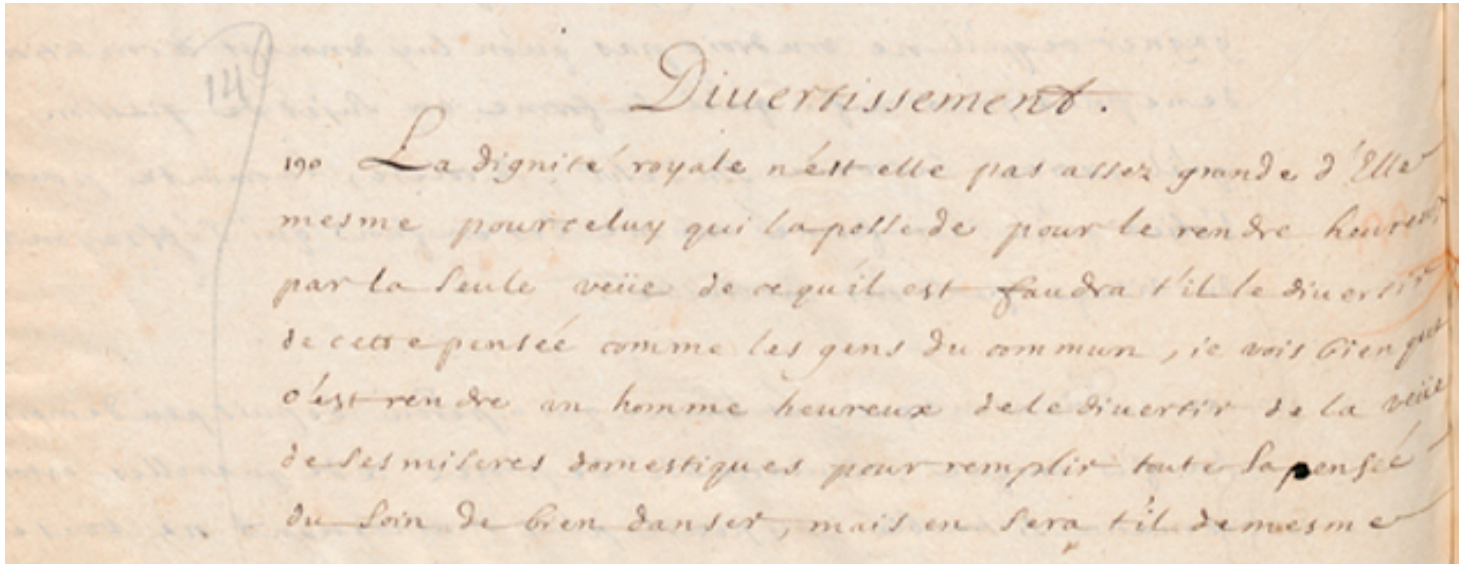 14
Diuertissement.
190 La dignité royale n'est elle pas assez grande d'Elle
mesme pour celuy qui la possede pour le rendre heureux
par la seule veüe de ce qu'il est faudra t'il le diuertir
de cette pensée comme les gens du commun, ie vois bien que
c'est rendre un homme heureux de le diuertir de la veüe
de ses miseres domestiques pour remplir toute sa pensée
du soin de bien danser, mais en sera t'il de mesme